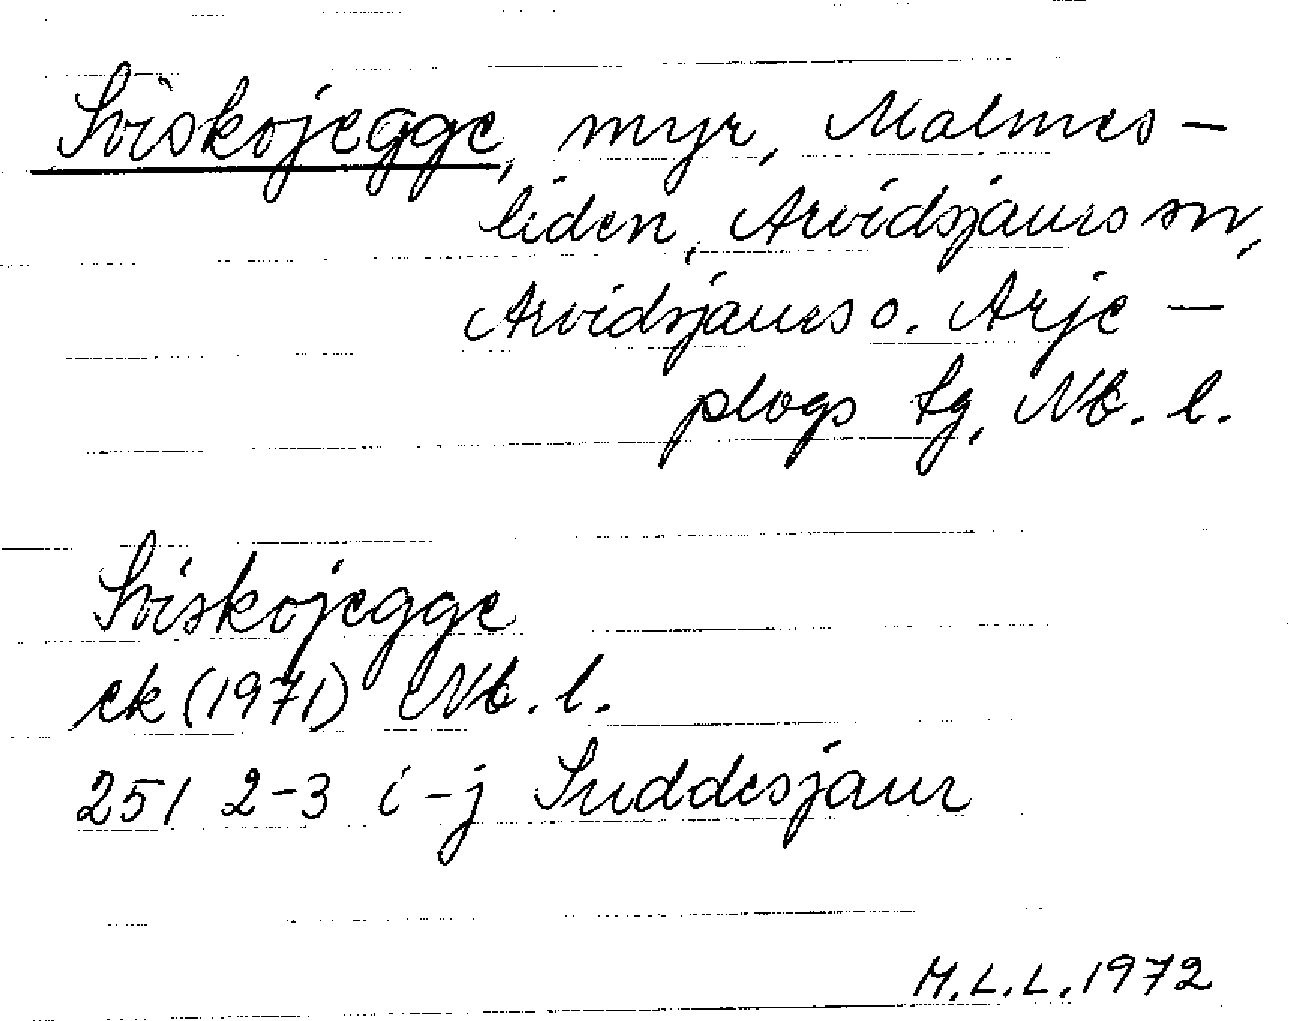 Sviskojegge, myr, Malmes-
liden, Arvidsjaurs sn,
Arvidsjaurs o. Arje-
plogs tg, Nb. l.
Sviskojegge
ek (1971) Nb. l.
251 2-3 i-j Suddesjaur
M.L.L. 1972